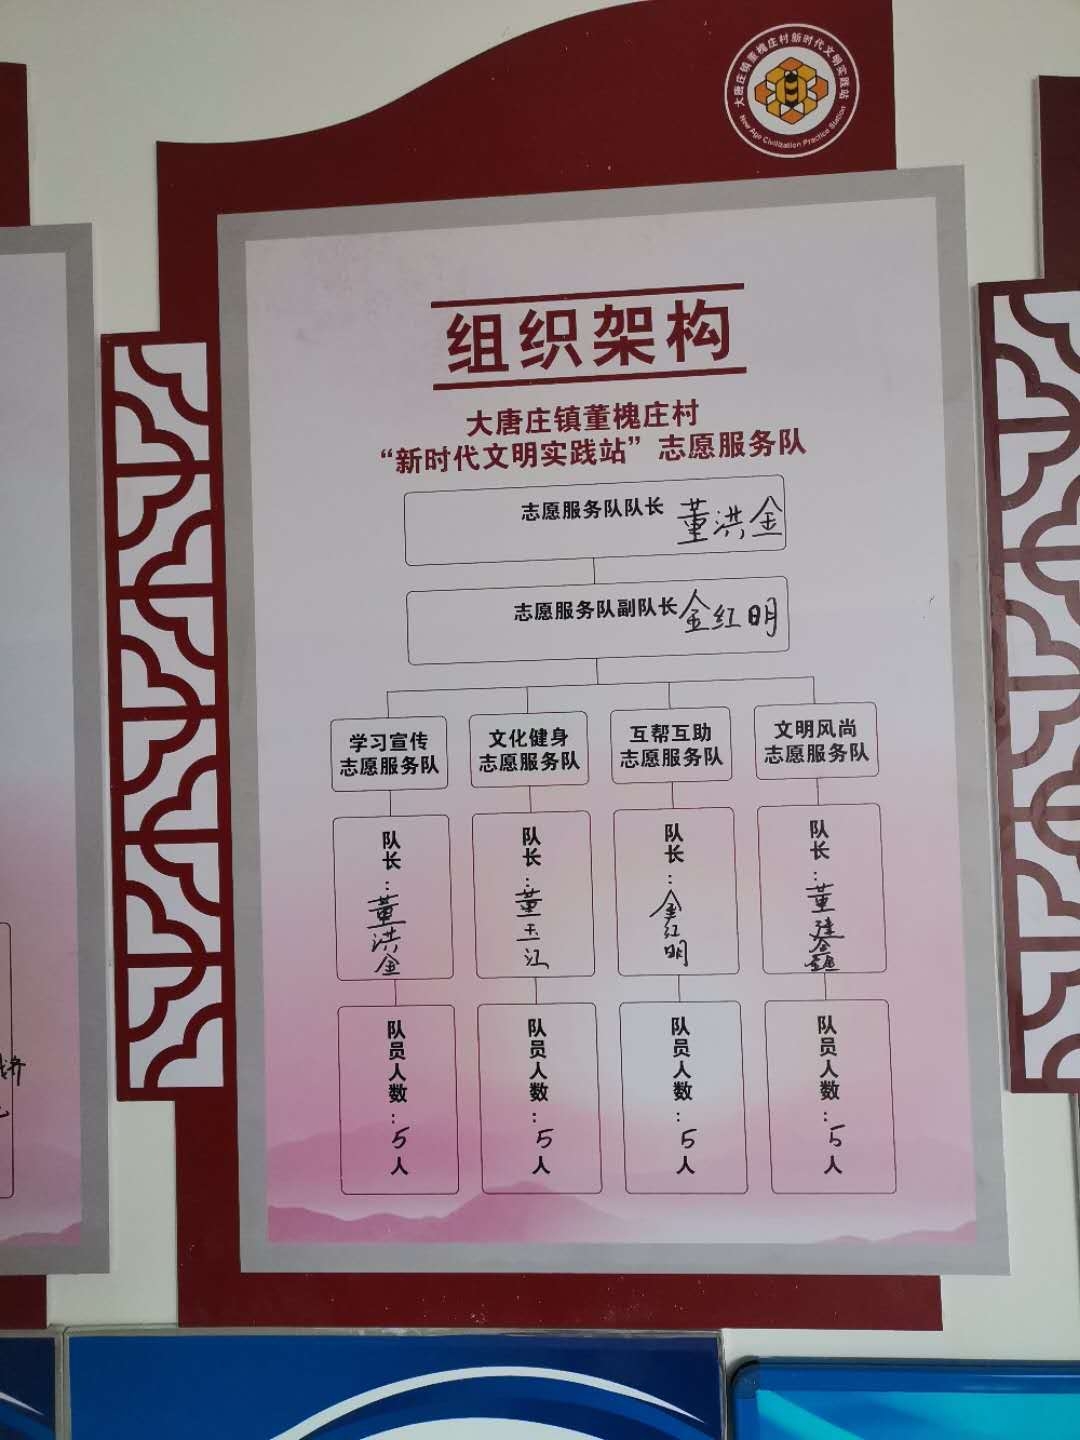 大唐庄镇董槐庄村新时代文明实践站
New Age Civilization Practice Station
组织架构
大唐庄镇董槐庄村
“新时代文明实践站”志愿服务队
志愿服务队队长 董洪金
志愿服务队副队长 金红明
学习宣传
志愿服务队
文化健身
志愿服务队
互帮互助
志愿服务队
文明风尚
志愿服务队
队长：董洪金
队长：董玉江
队长：金红明
队长：董建
队员人数：5人
队员人数：5人
队员人数：5人
队员人数：5人